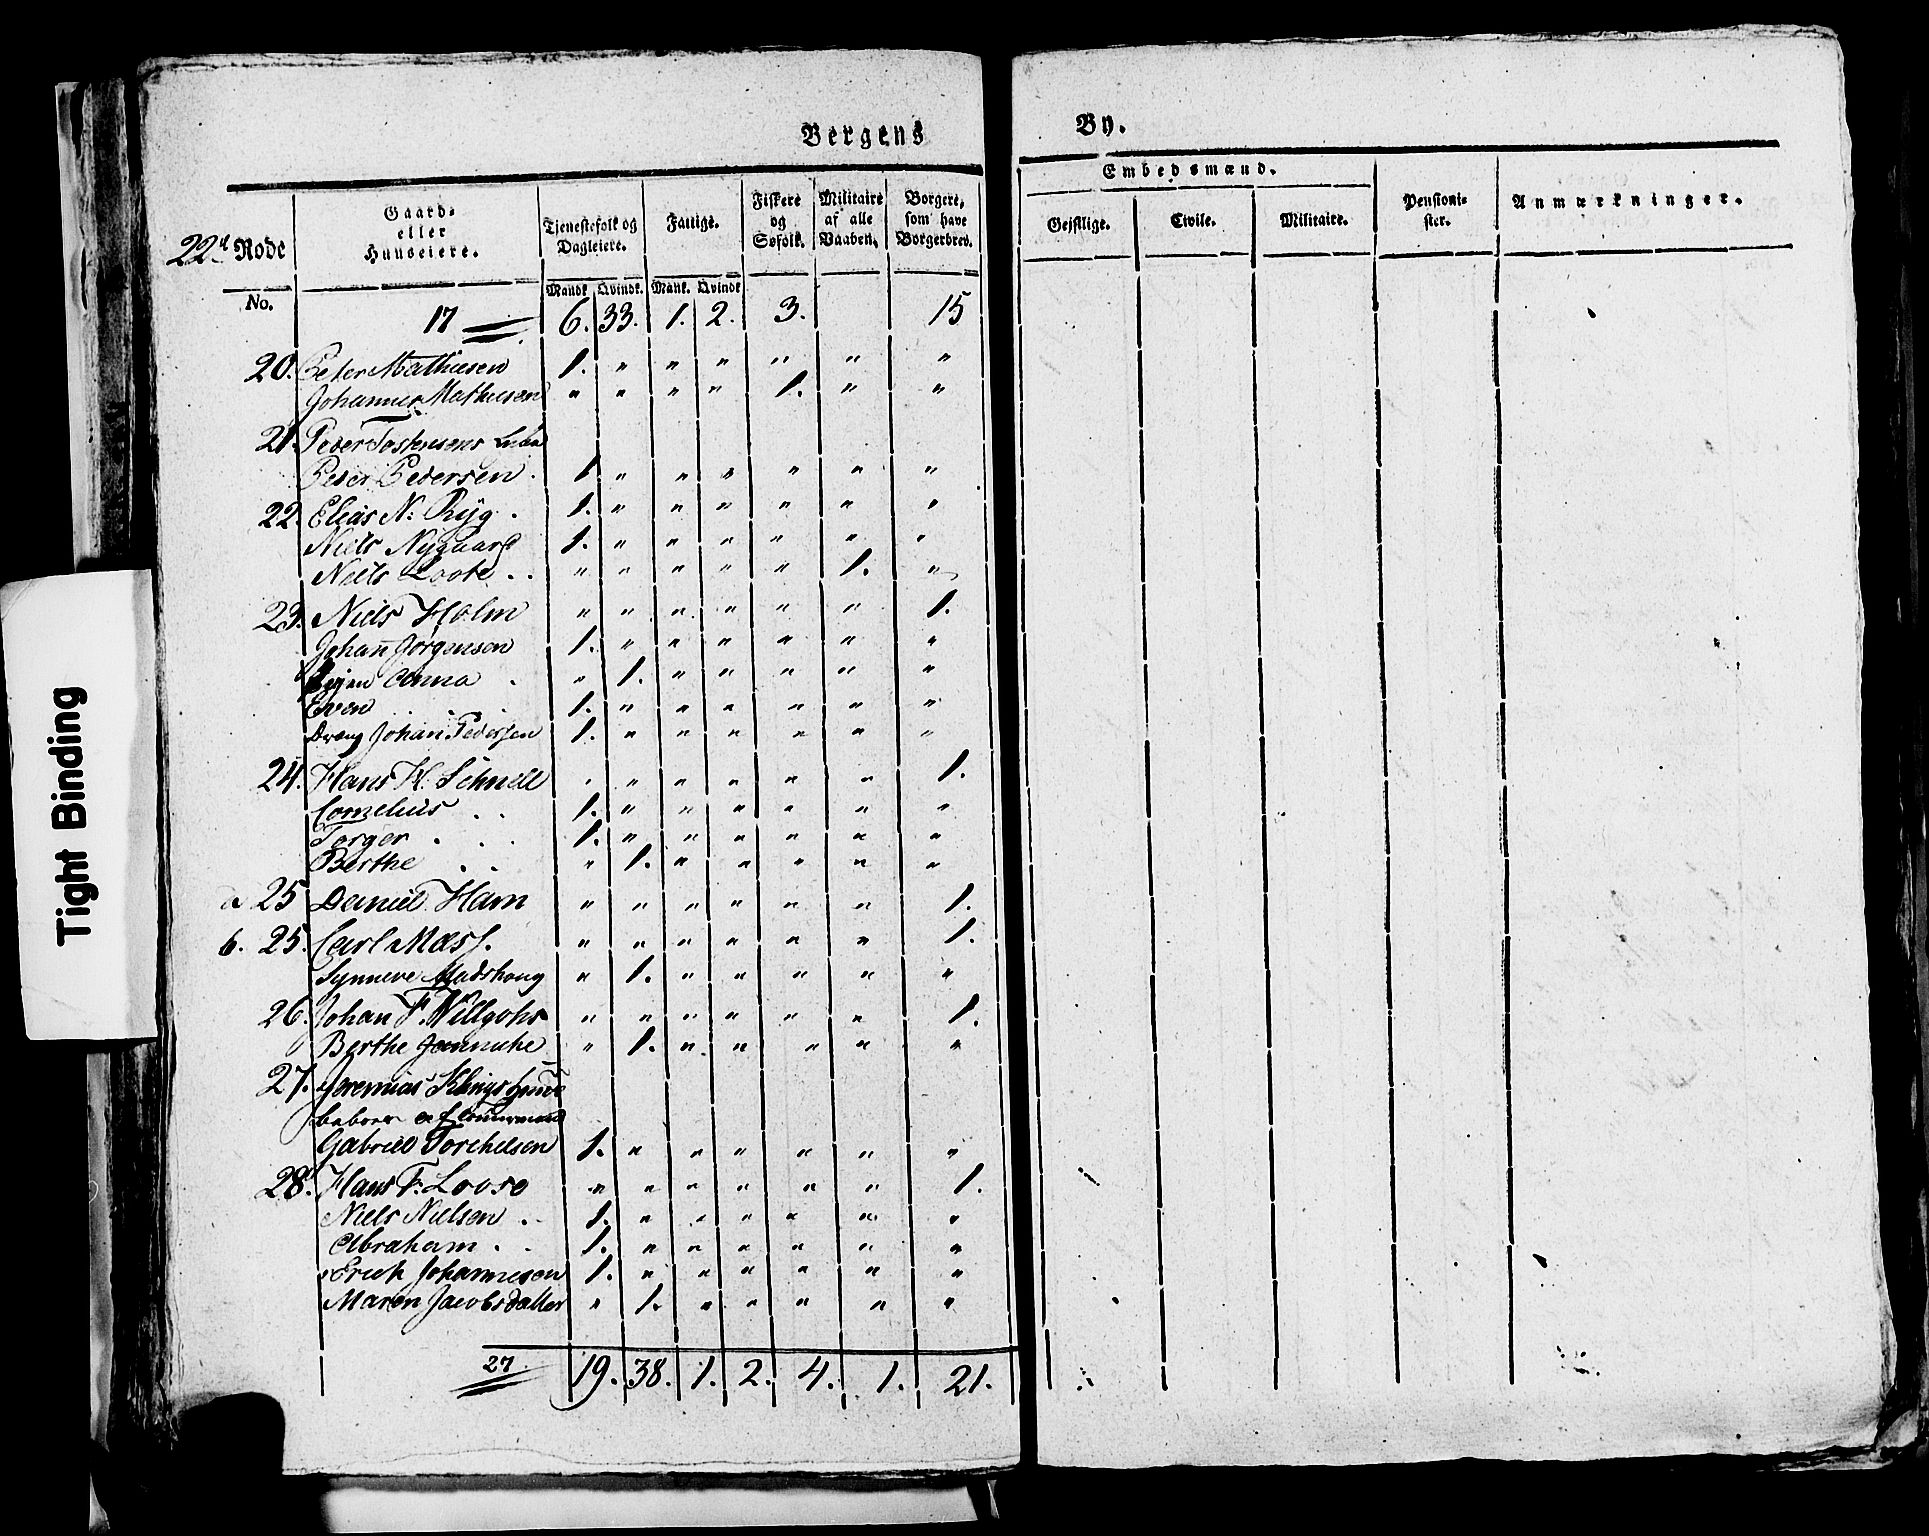 Bergens By.
22d Rode
Gaard- eller Huuseiere. Tjenestefolk og Dagleiere. Fattige. Fiskere og Søfolk. Militaire af alle Vaaben. Borgere, som have Borgerbrev. Embedsmænd. Geistlige. Civile. Militaire. Pensionister. Anmærkninger.
No. Mandk. Qvindk. Mank. Qvindk
17 6. 33. 1. 2. 3. 15
20. Peter Mathiesen 1. " " " " " "
Johannes Mathiesen " " " " 1. " "
21. Peder Tostensens
Peder Pedersen. 1. " " " " " "
22. Elias N: Ryg. 1. " " " " " "
Niels Nygaard 1. " " " " " "
Niels Loote.. " " " " " 1. "
23. Niels Holm " " " " " " 1.
Johan Jörgensen 1. " " " " " "
Anna. " 1. " " " " "
Even 1. " " " " " "
Dreng Johan Pedersen 1. " " " " " "
24. Hans H. Schnell " " " " " " 1.
Cornelius.. 1. " " " " " "
Torger... 1. " " " " " "
Berthe.. " 1. " " " " "
a 25 Daniel Ham " " " " " " 1.
b. 25. Carl Mæsf. " " " " " " 1.
Synneve " 1. " " " " "
26. Johan F. Willgohs " " " " " " 1.
Berthe Jannicke " 1. " " " " "
27. Jeremias
Gabriel Torchelsen 1. " " " " " "
28. Hans F. Loose " " " " " " 1.
Niels Nielsen.. 1. " " " " " "
Abraham.. 1. " " " " " "
Erich Johannesen 1. " " " " " "
Maren Jacobsdatter " 1. " " " " "
27. 19. 38. 1. 2. 4. 1. 21.
Tight Binding